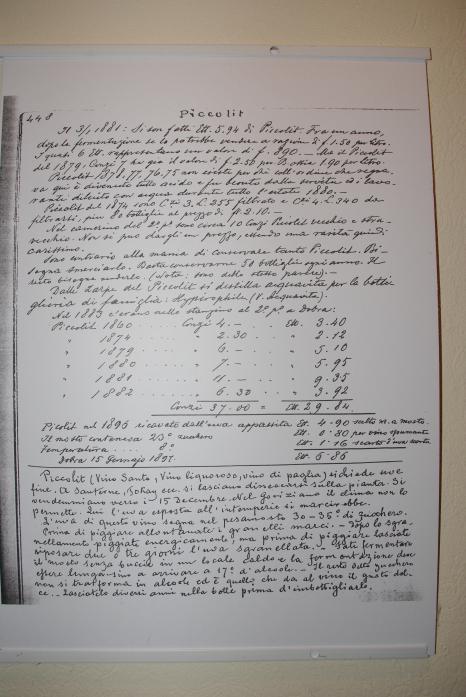 448
Piccolit
Il 3/1 1881: Si son fatti Ett. 5.94 di Piccolit. Fra un anno,
dopo la fermentazione lo potrebbe vendere a ragion di f 1.50 per litro.
I quasi 6 Ett. rappresentano un valore di f. 890.— Ma il Piccolit
del 1879. Conzi 7 ha già il valor di f 2.53 per Bottia 1.90 per litro.
Piccolit 1878.77,76,75 non esiste perchè coll'ordine che regna-
va qui è divenuto tutto acido e fu bevuto dalla servitù ed i lavo-
ranti diluito con acqua durante tutto l'estate 1880.—
Piccolit del 1874 sono Czi 3. L. 255 filtrato e Czi 4. L. 340 da
filtrarsi, più 80 bottiglie al prezzo di f. 2.10.—
Nel camerino del 2º pº sono circa 10 Conzi Piccolit vecchio e stra-
vecchio. Non si può dargli un prezzo, essendo una rarità quindi
carissimo.
Sono contrario alla mania di conservare tanto Piccolit. Bi-
sogna smerciarlo. Basta conservarne 50 bottiglie ogni anno. Il
resto bisogna venderlo. (Nota: sono dello stesso parere).—
Dalle zarpe del Piccolit si distilla acquavita per la botti-
glieria di famiglia: Hyperophile (V. Acquavita).
Nel 1883 c'erano nello stanzino al 2º pº a Dobra:
Piccolit 1860 .... Conzi 4.— .. Ett. 3.40
" 1874 ...... " 2.30 .. " 2.12
" 1879 ...... " 6.— .. " 5.10
" 1880 ...... " 7.— .. " 5.95
" 1881 ...... " 11.— .. " 9.35
" 1882 ...... " 6.30 .. " 3.92
Conzi 37.00 = Ett. 29.84.
Piccolit nel 1896 ricavato dall'uva appassita Ett. 4.90
Il mosto conteneva 23º zucchero Ett. 0.80 per vino spumante
Temperatura .... 8º Ett. 1.16 scarto d'uva
Dobra 15 Gennajo 1897. Ett. 6.86
Piccolit (Vino Santo, Vino liquoroso, vino di paglia) richiede uve
fine. A Santorne, Tokay ecc. si lasciano disseccare sulla pianta. Si
vendemmiano verso i 15 Decembre. Nel Goriziano il clima non lo
permette. Qui l'uva esposta all'intemperie si marcirebbe.
L'uva di questo vino segna nel pesamosto 30-35º di zucchero.
Prima di piggiare allontanate i granelli marci. - Dopo lo sgra-
nellamento piggiate energicamente, ma prima di piggiare lasciate
riposare due o tre giorni l'uva sgranellata. - Fate fermentare
il mosto senza buccie in un locale caldo e la fermentazione deve
essere lunga sino a arrivare a 17º d'alcoole. - Il resto dello zucchero
non si trasforma in alcoole ed è quello che da al vino il gusto dol-
ce. - Lasciatelo diversi anni nella botte prima d'imbottigliarlo.